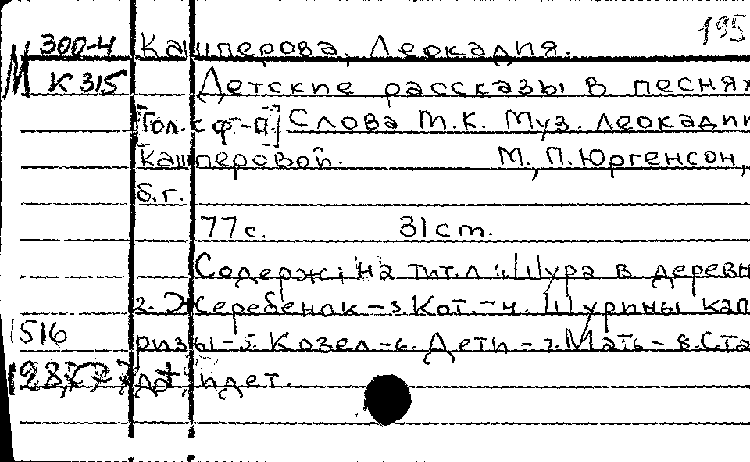 195
М 300-4 Кашперова, Леокадия.
К 315 Детские рассказы в песнях
[Гол. с ф-п.] Слова М.К. Муз. Леокадии
Кашперовой. М., П. Юргенсон,
б.г.
77 с. 31 см.
Содерж: на тит.л 1. Шура в деревн
2. Жеребенок - 3. Кот. - 4. Шурины кап
1516 ризы - 5. Козел - 6. Дети - 7. Мать - 8. Ста
до идет.